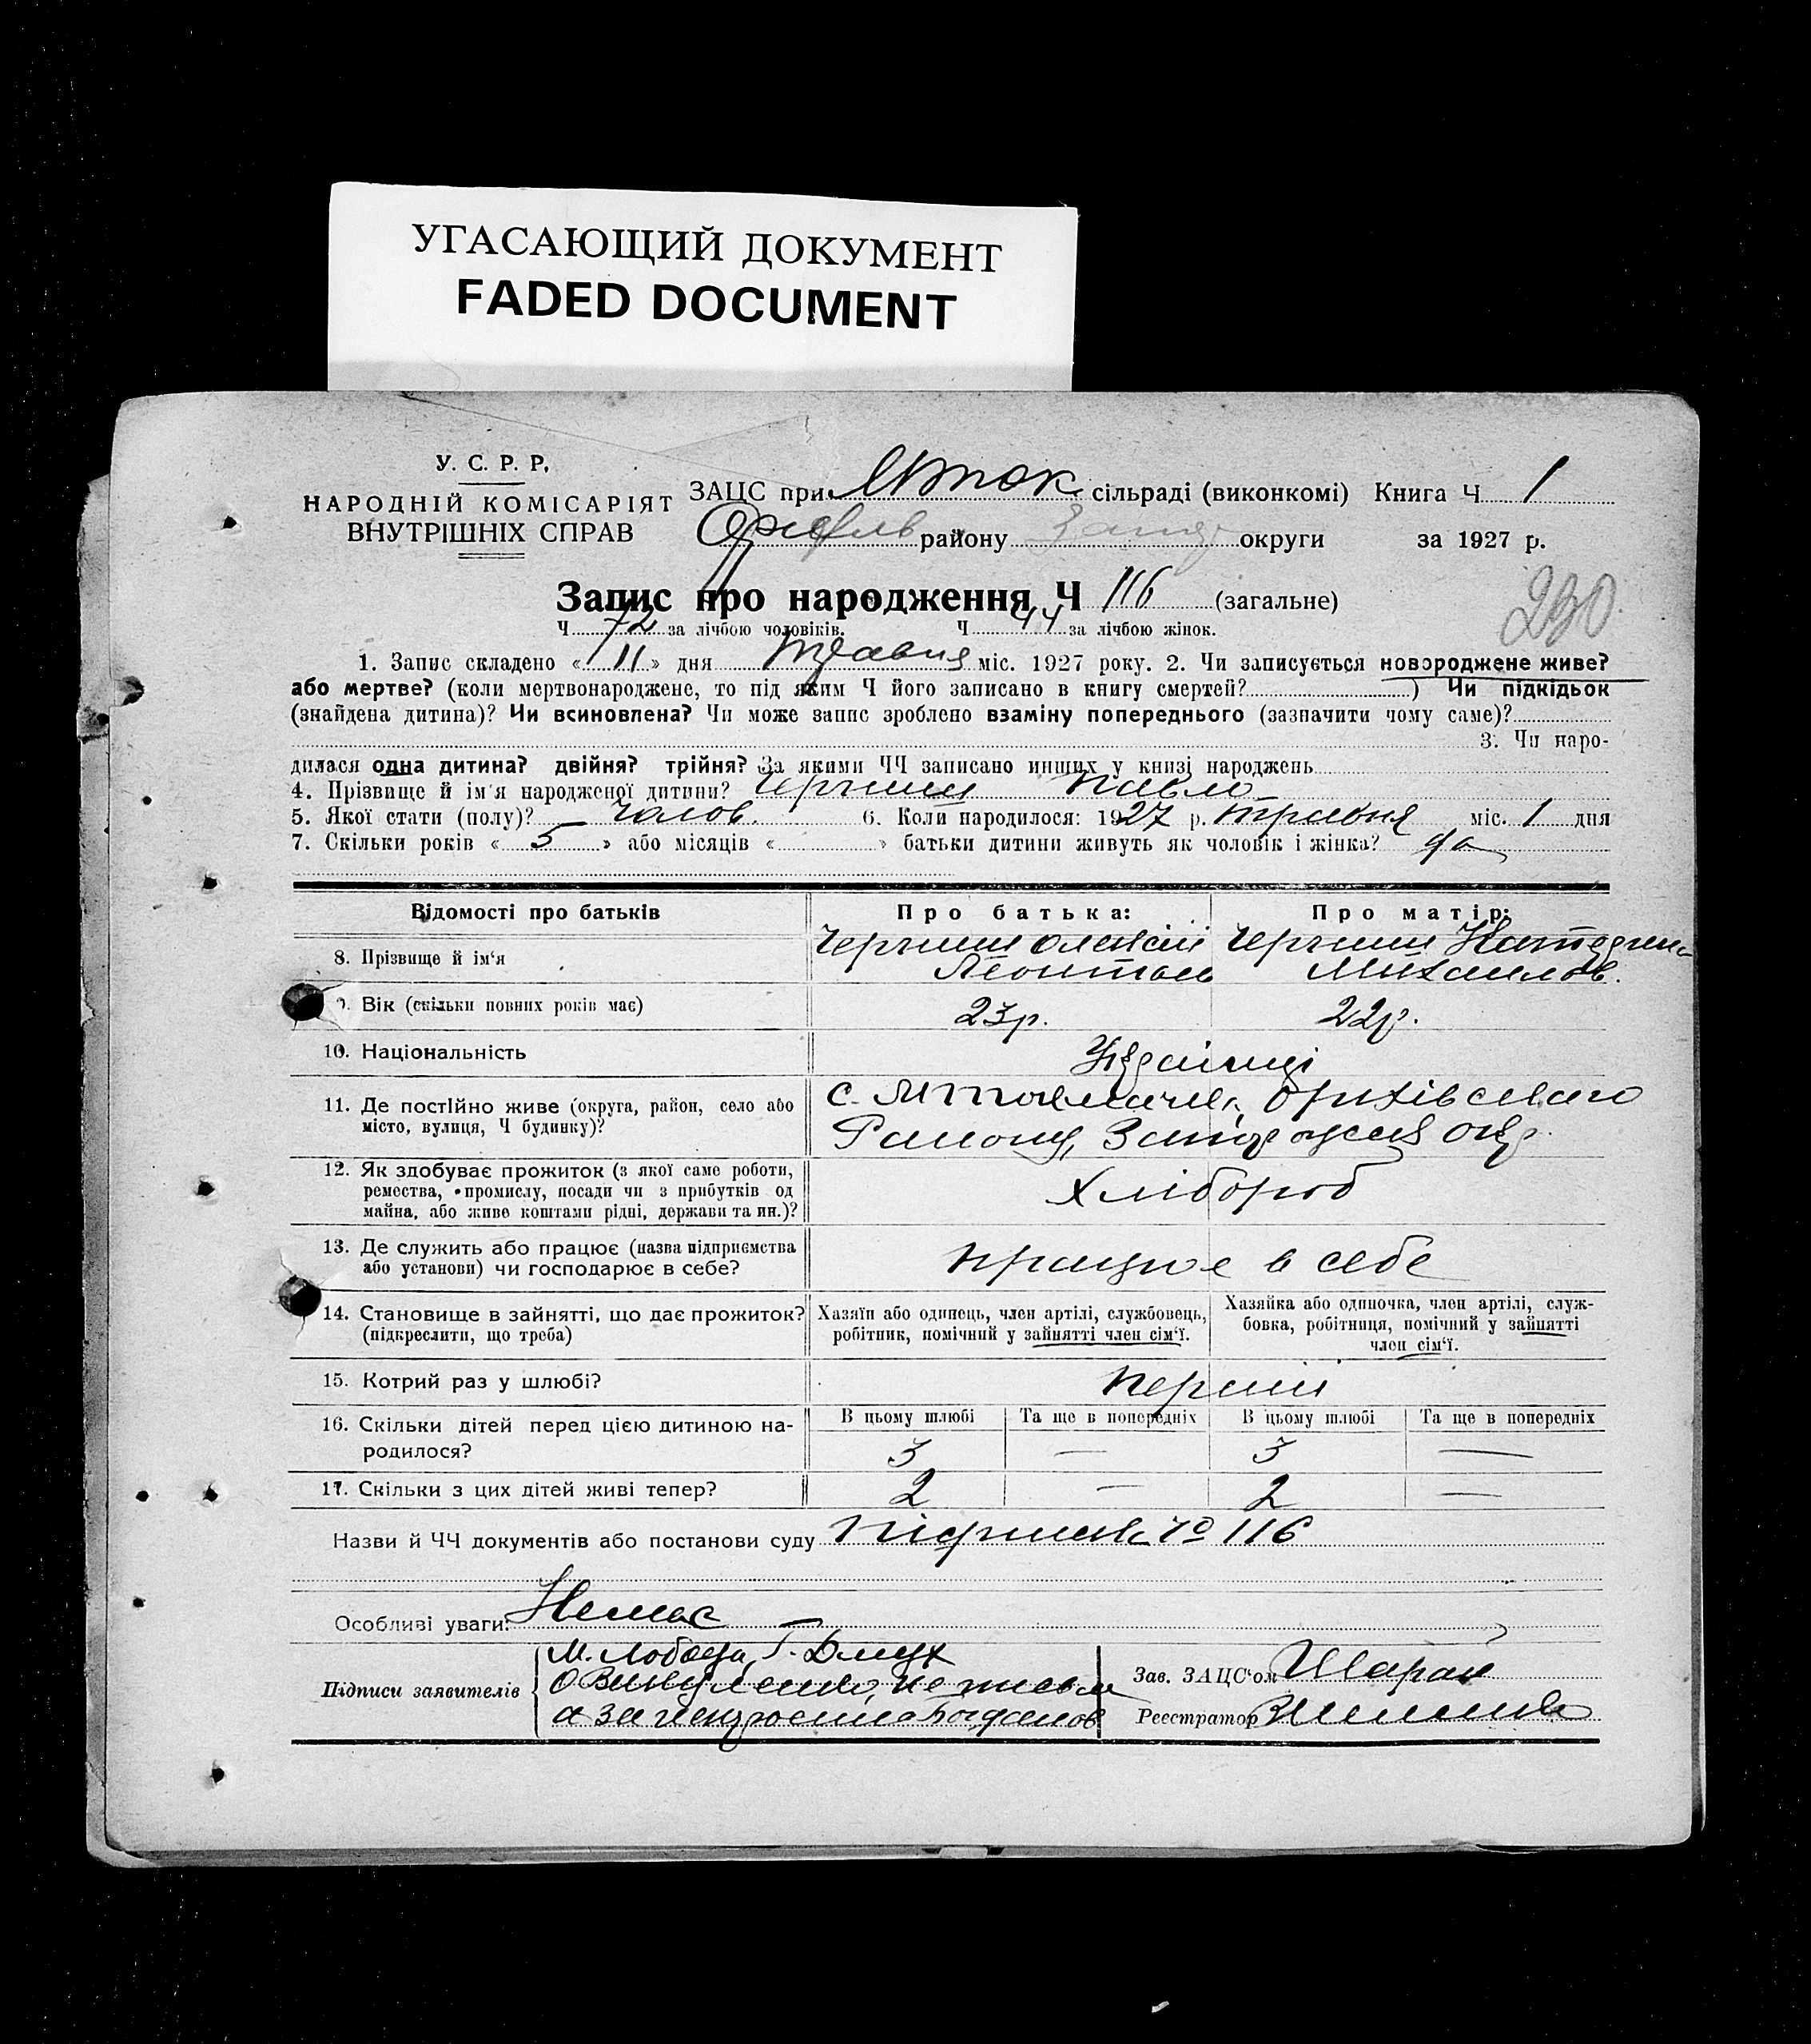 УГАСАЮЩИЙ ДОКУМЕНТ
FADED DOCUMENT
У. С. Р. Р.
НАРОДНІЙ КОМІСАРІЯТ
ВНУТРІШНІХ СПРАВ
ЗАЦС при сільраді (виконкомі) Книга Ч 1
району округи за 1927 р.
Запис про народження Ч 116 (загальне)
230
Ч 72 за лічбою чоловіків. Ч 44 за лічбою жінок.
1. Запис складено « 11 » дня травня міс. 1927 року. 2. Чи записується новороджене живе?
або мертве? (коли мертвонароджене, то під яким Ч його записано в книгу смертей? ) Чи підкідьок
(знайдена дитина)? Чи всиновлена? Чи може запис зроблено взаміну попереднього (зазначити чому саме)?
3. Чи наро-
дилася одна дитина? двійня? трійня? За якими ЧЧ записано инших у книзі народжень
4. Прізвище й ім'я народженої дитини? Павло
5. Якої стати (полу)? чолов. 6. Коли народилося: 1927 р. травня міс. 1 дня
7. Скільки років « 5 » або місяців « » батьки дитини живуть як чоловік і жінка? да
Відомості про батьків
Про батька:
Про матір:
8. Прізвище й ім'я
Олексій
Михайлов.
9. Вік (скільки повних років має)
23р.
22р.
10. Національність
Українці
11. Де постійно живе (округа, район, село або
місто, вулиця, Ч будинку)?
с. Оріхівського
Району, Запорожськ окр.
12. Як здобуває прожиток (з якої саме роботи,
ремества, промислу, посади чи з прибутків од
майна, або живе коштами рідні, держави та ин.)?
Хлібороб
13. Де служить або працює (назва підприємства
або установи) чи господарює в себе?
працює в себе
14. Становище в зайнятті, що дає прожиток?
(підкреслити, що треба)
Хазяїн або одинець, член артілі, службовець,
робітник, помічний у зайнятті член сім'ї.
Хазяйка або одиночка, член артілі, служ-
бовка, робітниця, помічний у зайнятті
член сім'ї.
15. Котрий раз у шлюбі?
перший
16. Скільки дітей перед цією дитиною на-
родилося?
В цьому шлюбі
Та ще в попередніх
В цьому шлюбі
Та ще в попередніх
3 — 3 —
17. Скільки з цих дітей живі тепер?
2 — 2 —
Назви й ЧЧ документів або постанови суду 116
Особливі уваги: Немає
Підписи заявителів
М. Лобода, Г.
а за них росписався Богданов
Зав. ЗАЦС'ом Шарай
Реєстратор